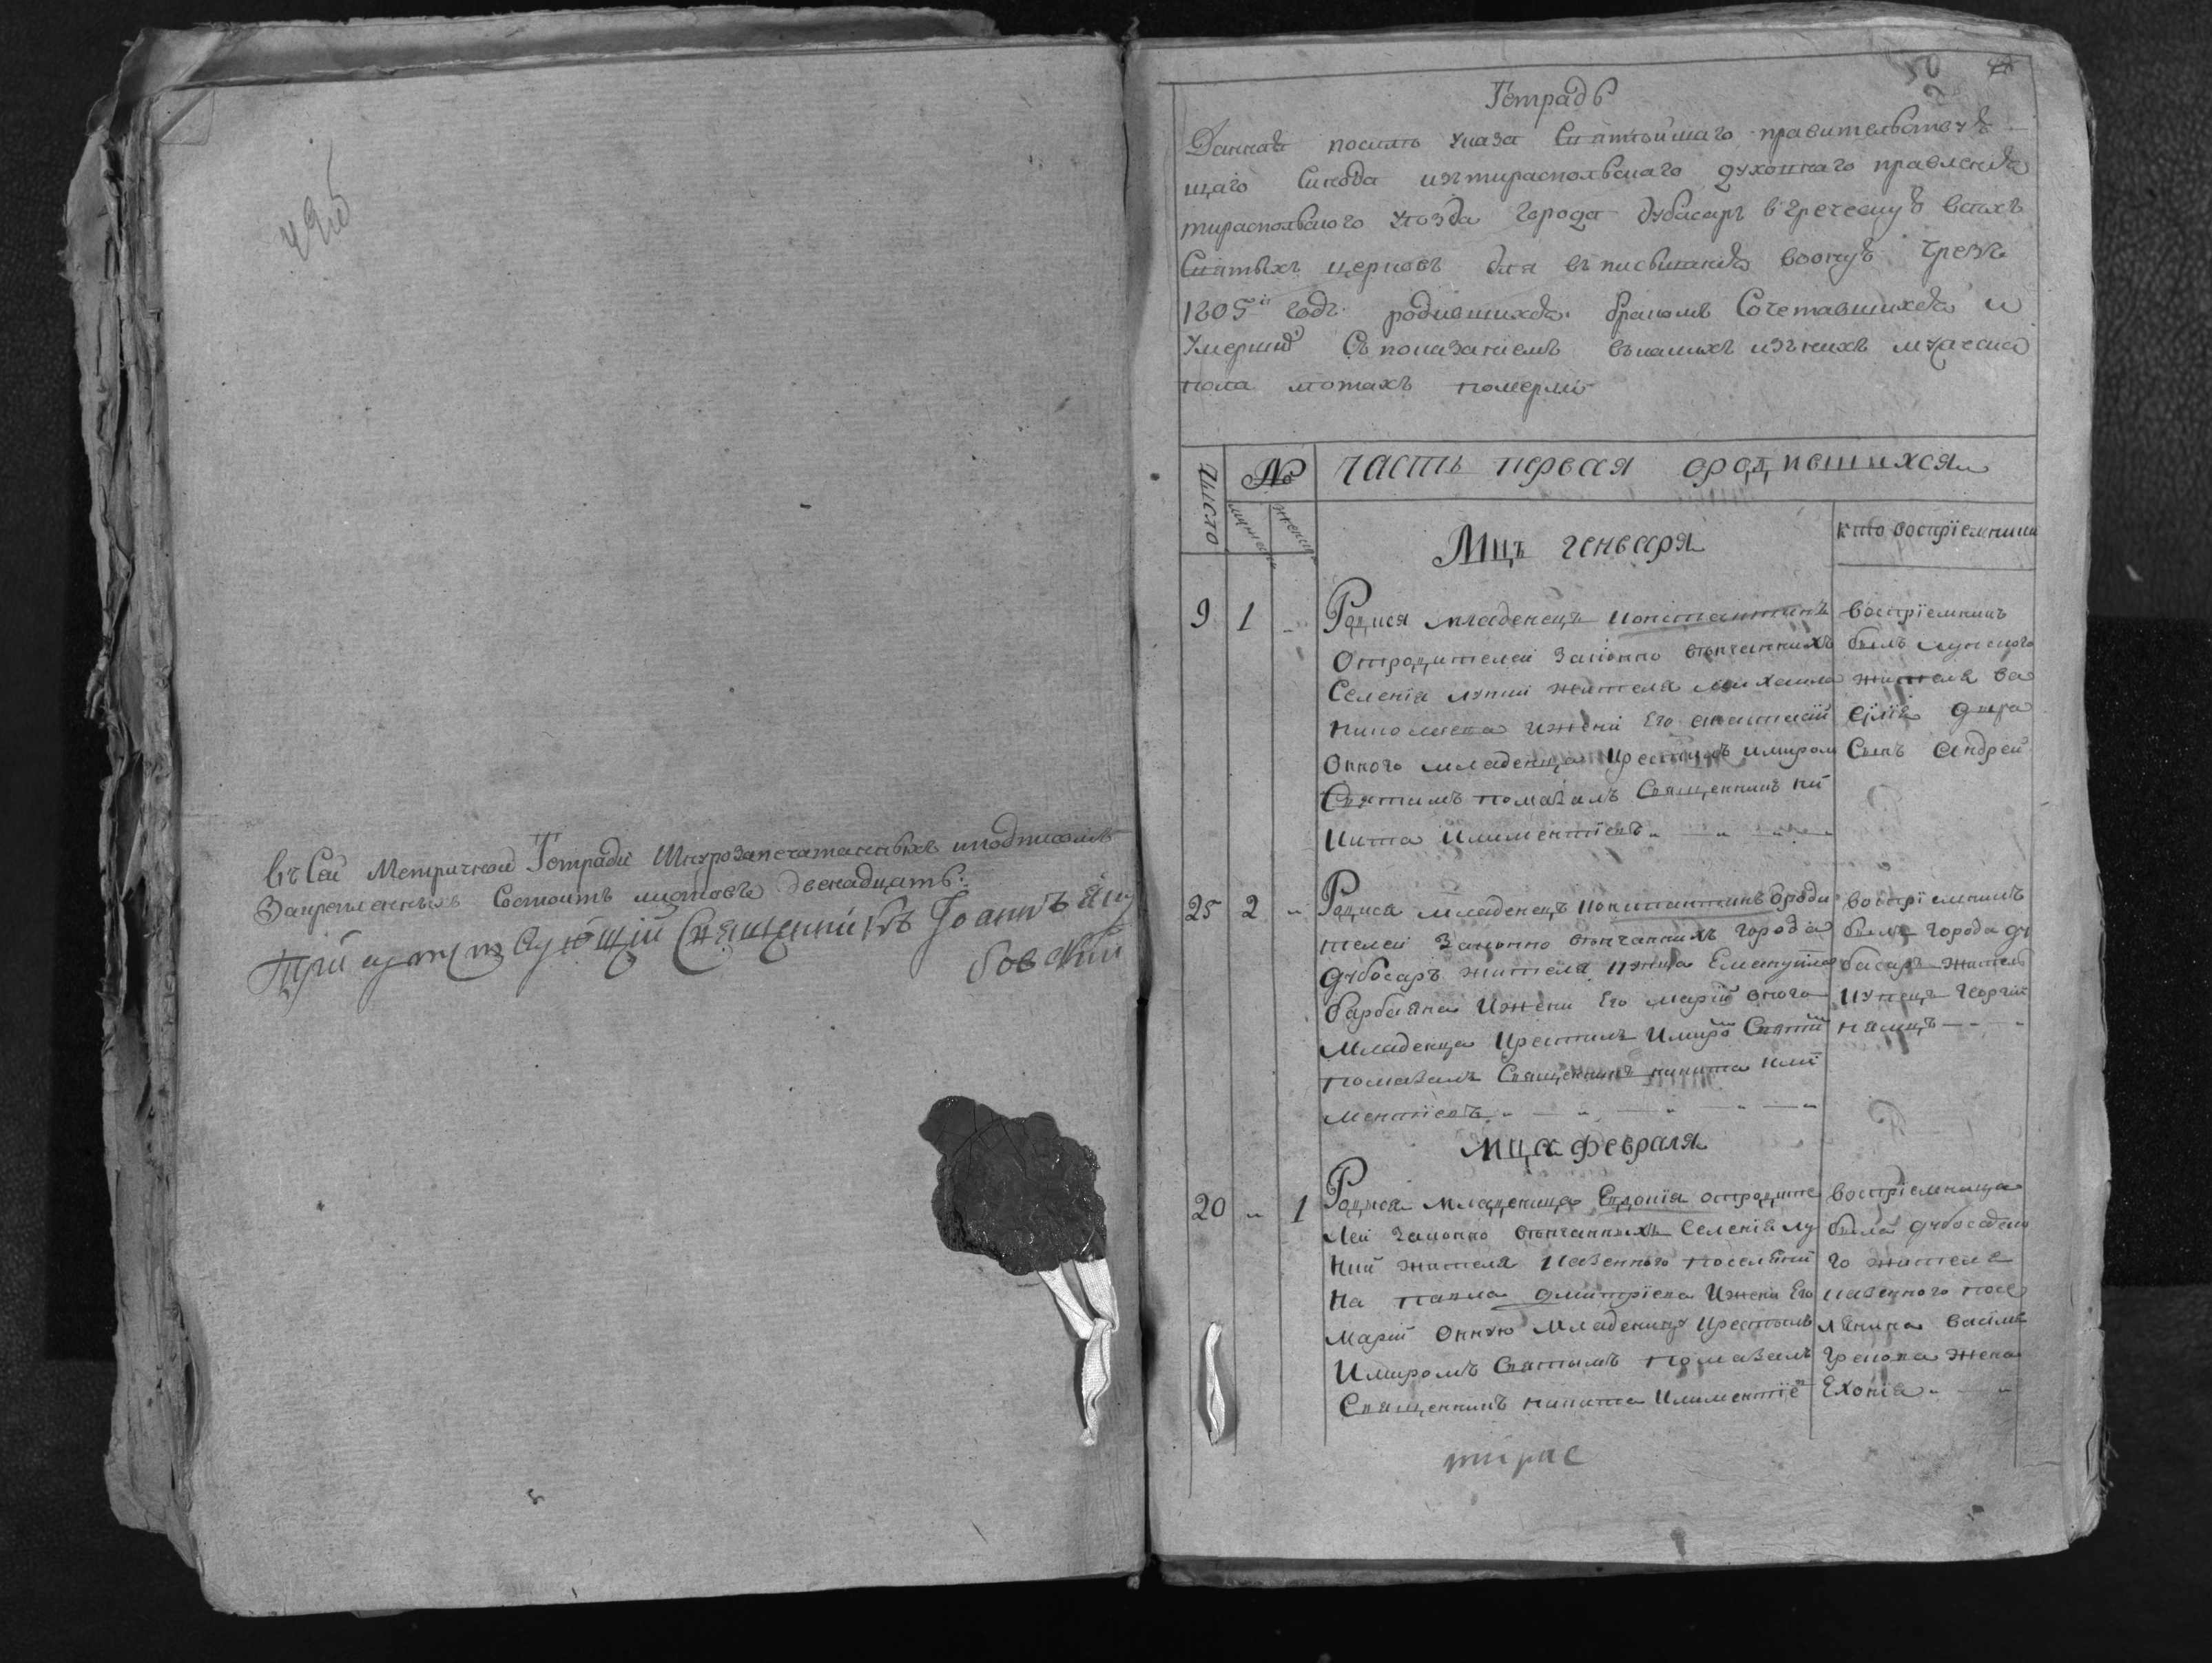 49об
Въ Сей Метричной Тетради Шнурозапечатанныхъ иподписомъ
Закрепленныхъ Состоитъ листовъ двенадцать:
Присутствующій Священникъ Іоаннъ
бовский
50
Тетрадь
Данная посилѣ указа Святѣйшаго правительствую
щаго Синода изтираспольскаго духовнаго правленія
тираспольского уѣзда города дубасаръ вгреческую всѣхъ
Святыхъ церковь для въписыванія вооную чрезъ
1805й годъ родившихся бракомъ Сочетавшихся и
умершихъ Съ показаніемъ въкакихъ изънихъ мужеска
пола лѣтахъ померли
число
№
часть первая ородившихся
мужеска
женска
Мцъ генваря
кто воспріемники
9 1 Родися младенецъ константинъ
Отродителей законно вѣнчанныхъ
Селенія лунки жителя михаила
николаева ижени Его анастасіи
Онного младенца крестилъ имиромъ
Святимъ помазалъ Священникъ ни
кита климентіевъ
воспріемникъ
билъ лунского
жителя ва
силія
Синъ андрей
25 2 Родися младенецъ константинъ Ороди
телей законно вѣнчаннихъ города
дубосаръ жителя
барбаяна ижени Его маріи оного
младенца крестилъ имиро Святи
помазалъ Священникъ никита кли
ментіевъ
воспріемникъ
билъ города ду
басаръ житель
купецъ георгій
мца февраля
20 1 Родися младеница Евдокія отродите
лей законно вѣнчаннихъ Селенія лу
нки жителя казенного поселяни
на павла дмитріева ижени Его
маріи Онную младеницу крестилъ
имиромъ Святымъ помазалъ
Священникъ никита климентіе
воспріемница
била дубосарско
го жителя
казенного посе
лянина васілія
грекова жена
тирас